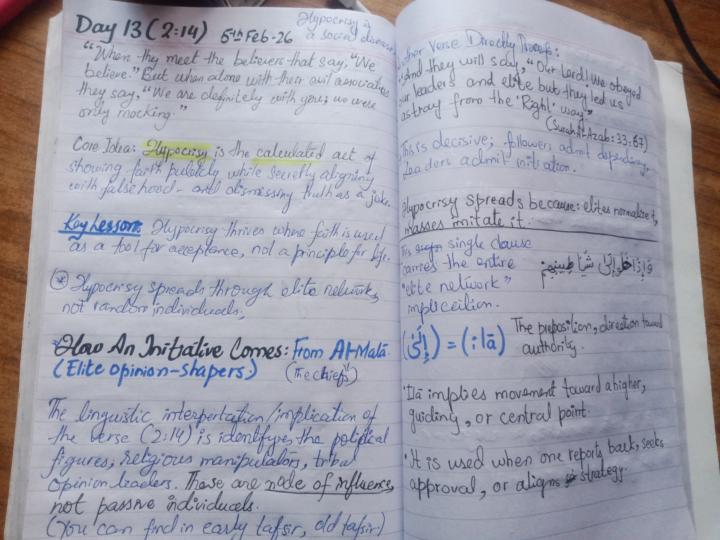 Day 13 (2:14) 5th Feb-26
Hypocrisy is
a social disease
"When they meet the believers that say, "We
believe." But when alone with their evil associates
they say, "We are definitely with you; we were
only mocking."
Core Idea: Hypocrisy is the calculated act of
showing faith publicly while secretly aligning
with falsehood - and dismissing truth as a joke.
Key Lesson: Hypocrisy thrives where faith is used
as a tool for acceptance, not a principle for life.
* Hypocrisy spreads through elite networks,
not random individuals.
*How An Initiative Comes: From Al-Mala
(Elite opinion-shapers) (The chiefs)
The linguistic interpertation/implication of
the verse (2:14) is identifypes the political
figures, religious manipulators, tribal
opinion leaders. These are node of influence,
not passive individuals.
(You can find in early tafsir, old tafsir)
other Verse Directly
"And they will say, "Our Lord! We obeyed
our leaders and elite but they led us
astray from the 'Right' way"
33:67)
This is decisive; followers admit dependency,
Leaders admit
Hypocrisy spreads because: elites normalize it,
masses imitate it.
This single clause
carries the entire
"elite network"
impliceition.
وَإِذَا خَلَوْا إِلَىٰ شَيَاطِينِهِمْ
(إِلَىٰ) = (ilā) The preposition, direction toward
authority.
'Ilā implies movement toward a higher,
guiding, or central point.
'It is used when one reports back, seeks
approval, or aligns strategy